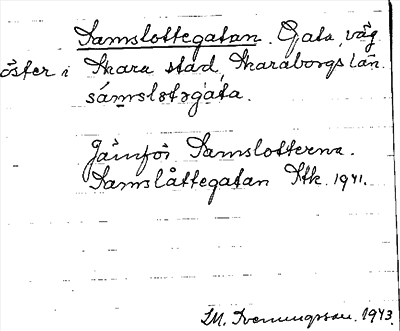 Samslottegatan. Gata, väg
öster i Skara stad, Skaraborgs län.
sámslotəgata.
Jämför Samslotterna.
Samslåttegatan Stk. 1941.
M. Svenungsson. 1943.